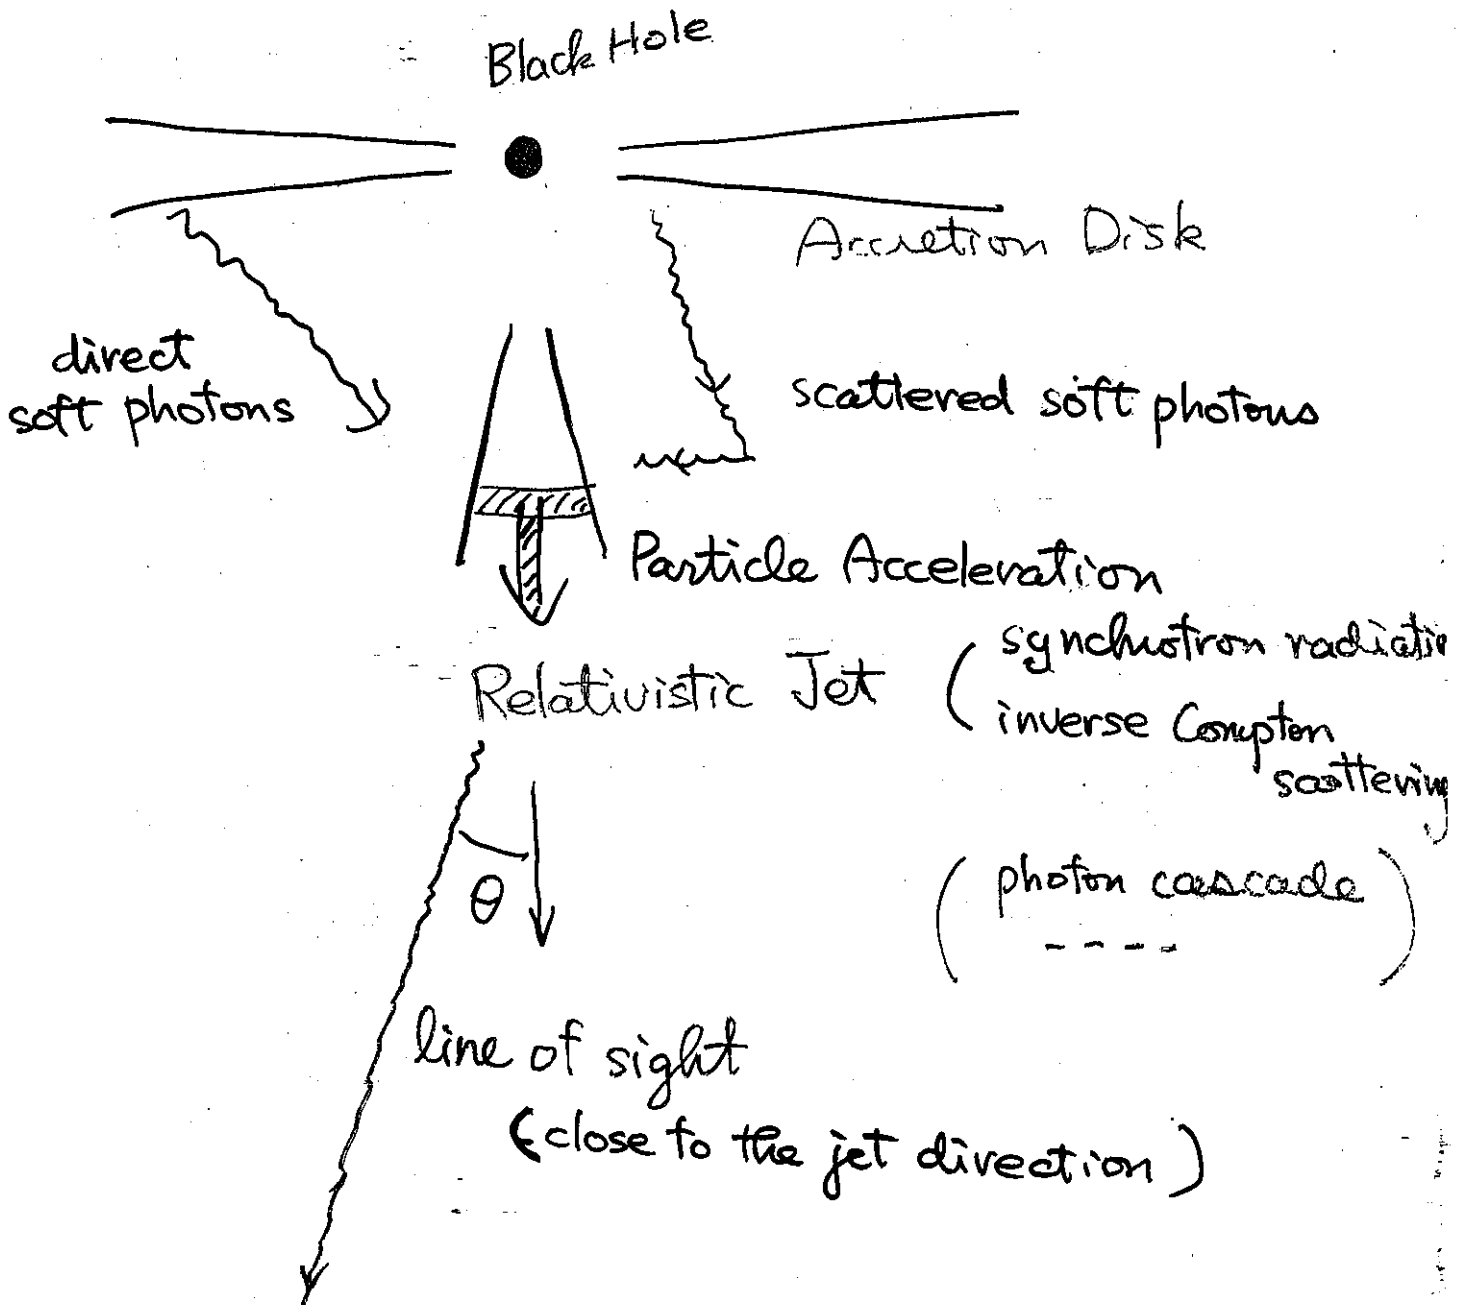 Black Hole
Accretion Disk
direct
soft photons
scattered soft photons
Particle Acceleration
Relativistic Jet
( synchrotron radiatio
inverse Compton
scattering
( photon cascade )
- - - -
θ
line of sight
(close to the jet direction)